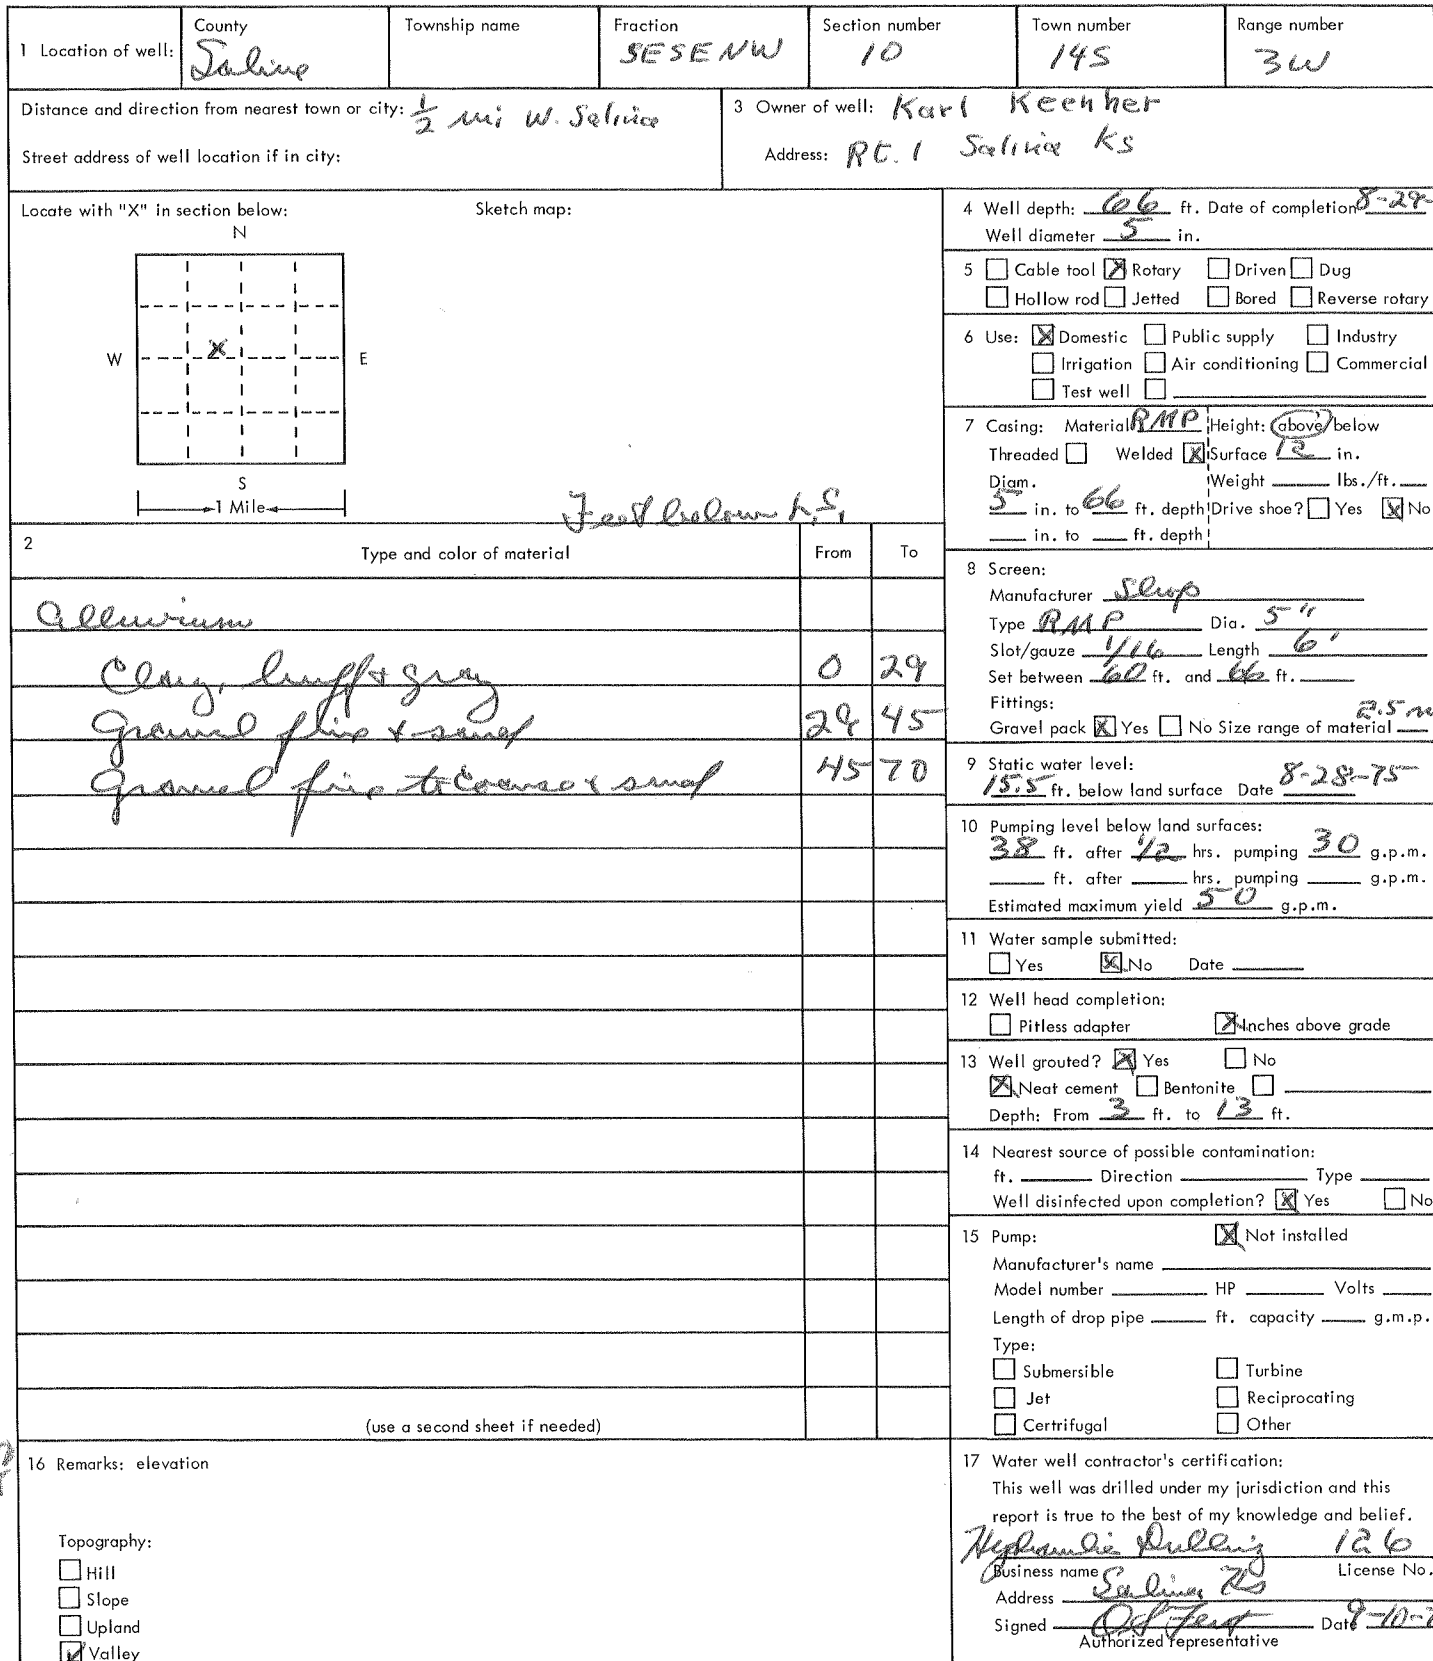 1 Location of well: County Saline Township name Fraction SESENW Section number 10 Town number 14S Range number 3W
Distance and direction from nearest town or city: 1/2 mi W. Salina
Street address of well location if in city:
3 Owner of well: Karl
Address: Rt. 1 Salina Ks
Locate with "X" in section below: Sketch map:
N
X
W E
S
1 Mile
Feet below L.S.
2 Type and color of material From To
Alluvium
Clay, buff & gray 0 29
Gravel fine & sand 29 45
Gravel fine to coarse & sand 45 70
(use a second sheet if needed)
4 Well depth: 66 ft. Date of completion 8-29-
Well diameter 5 in.
5 ☐ Cable tool ☒ Rotary ☐ Driven ☐ Dug
☐ Hollow rod ☐ Jetted ☐ Bored ☐ Reverse rotary
6 Use: ☒ Domestic ☐ Public supply ☐ Industry
☐ Irrigation ☐ Air conditioning ☐ Commercial
☐ Test well ☐
7 Casing: Material RMP Height: above/below
Threaded ☐ Welded ☒ Surface 12 in.
Diam. Weight ____ lbs./ft.
5 in. to 66 ft. depth Drive shoe? ☐ Yes ☒ No
____ in. to ____ ft. depth
8 Screen:
Manufacturer Shop
Type RMP Dia. 5"
Slot/gauze 1/16 Length 6'
Set between 60 ft. and 66 ft.
Fittings:
Gravel pack ☒ Yes ☐ No Size range of material 2.5 m
9 Static water level:
15.5 ft. below land surface Date 8-28-75
10 Pumping level below land surfaces:
38 ft. after 1/2 hrs. pumping 30 g.p.m.
____ ft. after ____ hrs. pumping ____ g.p.m.
Estimated maximum yield 50 g.p.m.
11 Water sample submitted:
☐ Yes ☒ No Date
12 Well head completion:
☐ Pitless adapter ☒ Inches above grade
13 Well grouted? ☒ Yes ☐ No
☒ Neat cement ☐ Bentonite ☐
Depth: From 3 ft. to 13 ft.
14 Nearest source of possible contamination:
ft. ____ Direction ____ Type ____
Well disinfected upon completion? ☒ Yes ☐ No
15 Pump: ☒ Not installed
Manufacturer's name
Model number ____ HP ____ Volts ____
Length of drop pipe ____ ft. capacity ____ g.m.p.
Type:
☐ Submersible ☐ Turbine
☐ Jet ☐ Reciprocating
☐ Certrifugal ☐ Other
16 Remarks: elevation
Topography:
☐ Hill
☐ Slope
☐ Upland
☑ Valley
17 Water well contractor's certification:
This well was drilled under my jurisdiction and this
report is true to the best of my knowledge and belief.
Hydraulic Drilling 126
Business name License No.
Address Salina, Ks
Signed Date 9-10-7
Authorized representative